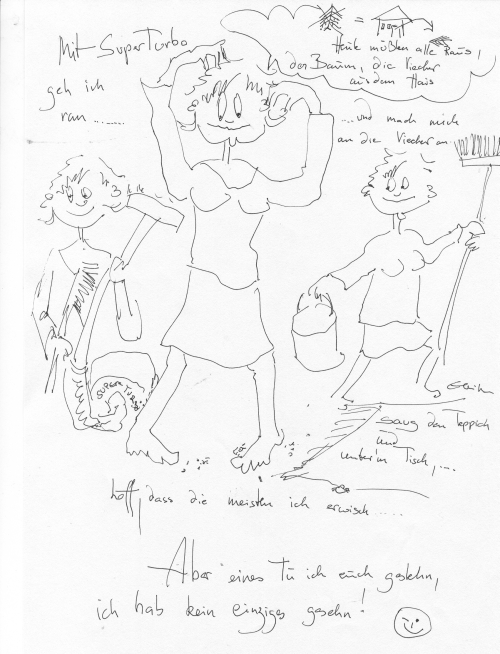 Mit SuperTurbo
geh ich
ran ........
=
Heute müßten alle raus!
der Baum, die Viecher
aus dem Haus
... und mach mich
an die Viecher an
SUPER TURBO
saug den Teppich
und
unter'm Tisch, ....
hoff, dass die meisten ich erwisch .....
Aber eines tu ich euch gestehn,
ich hab kein einziges gesehn!